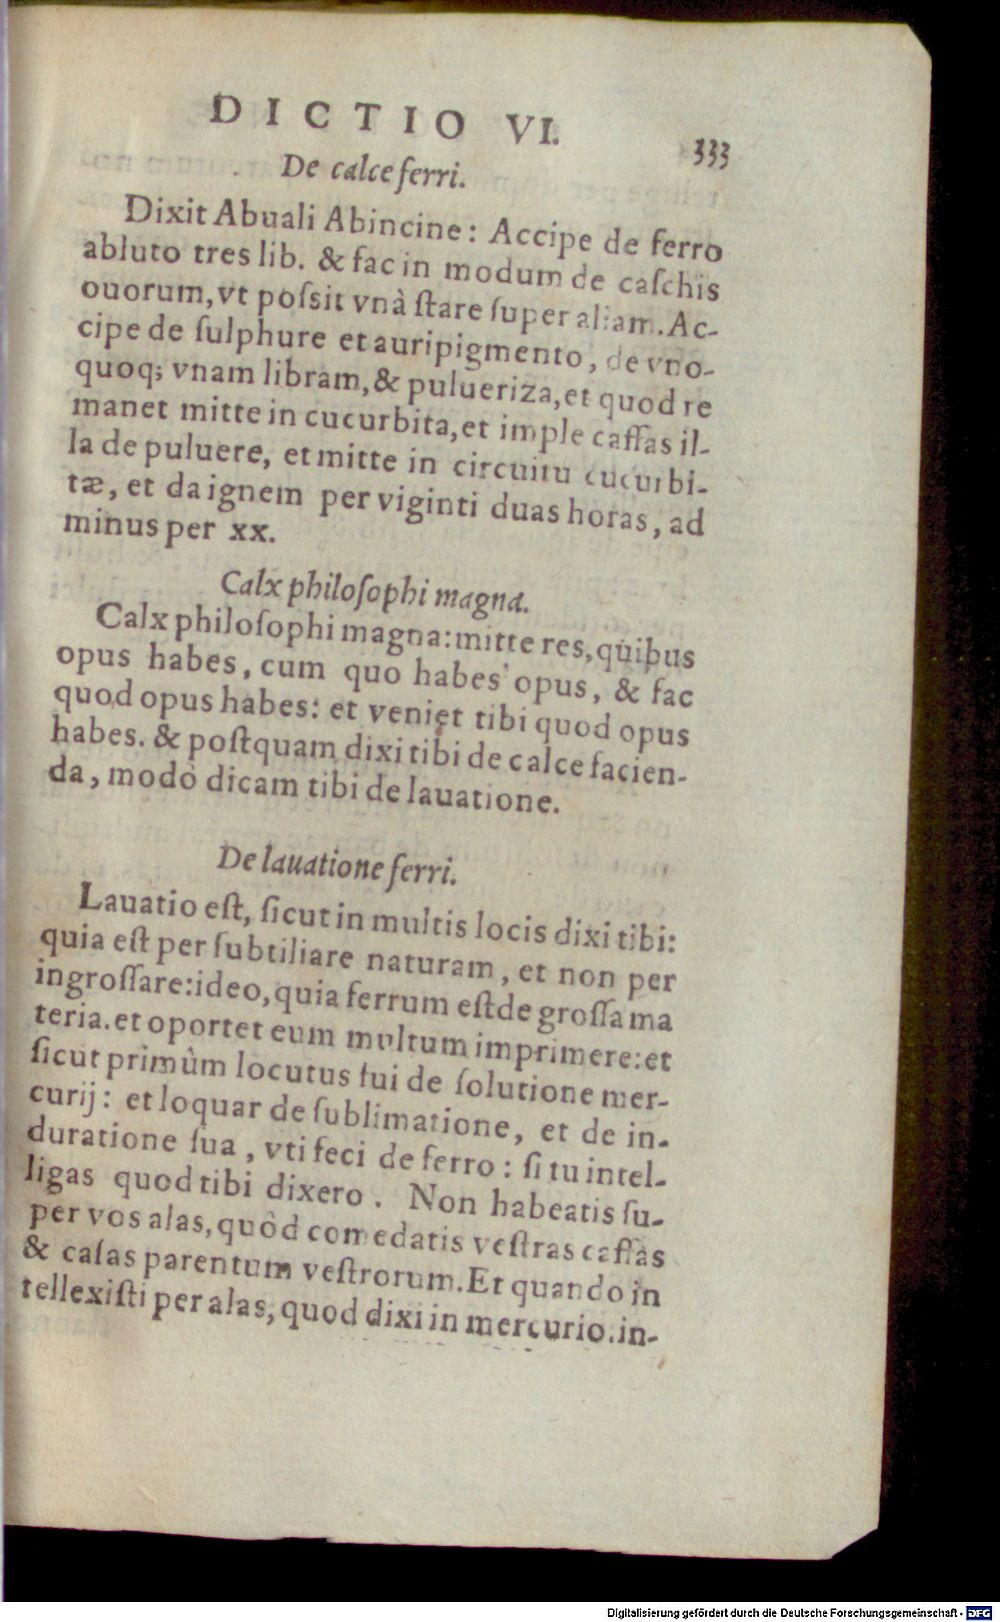 DICTIO VI. 333
De calce ferri.
Dixit Abuali Abincine: Accipe de ferro
abluto tres lib. & fac in modum de caſchis
ouorum, vt poſsit vnà ſtare ſuper aliam. Ac-
cipe de ſulphure et auripigmento, de vno-
quoq; vnam libram, & pulueriza, et quod re
manet mitte in cucurbita, et imple caſſas il-
la de puluere, et mitte in circuitu cucurbi-
tæ, et da ignem per viginti duas horas, ad
minus per xx.
Calx philoſophi magna.
Calx philoſophi magna: mitte res, quibus
opus habes, cum quo habes opus, & fac
quod opus habes: et veniet tibi quod opus
habes. & poſtquam dixi tibi de calce facien-
da, modò dicam tibi de lauatione.
De lauatione ferri.
Lauatio eſt, ſicut in multis locis dixi tibi:
quia eſt per ſubtiliare naturam, et non per
ingroſſare: ideo, quia ferrum eſt de groſſa ma
teria. et oportet eum multum imprimere: et
ſicut primùm locutus fui de ſolutione mer-
curij: et loquar de ſublimatione, et de in-
duratione ſua, vti feci de ferro: ſi tu intel-
ligas quod tibi dixero. Non habeatis ſu-
per vos alas, quòd comedatis veſtras caſſas
& caſas parentum veſtrorum. Et quando in
tellexiſti per alas, quod dixi in mercurio. in-
Digitalisierung gefördert durch die Deutsche Forschungsgemeinschaft - DFG